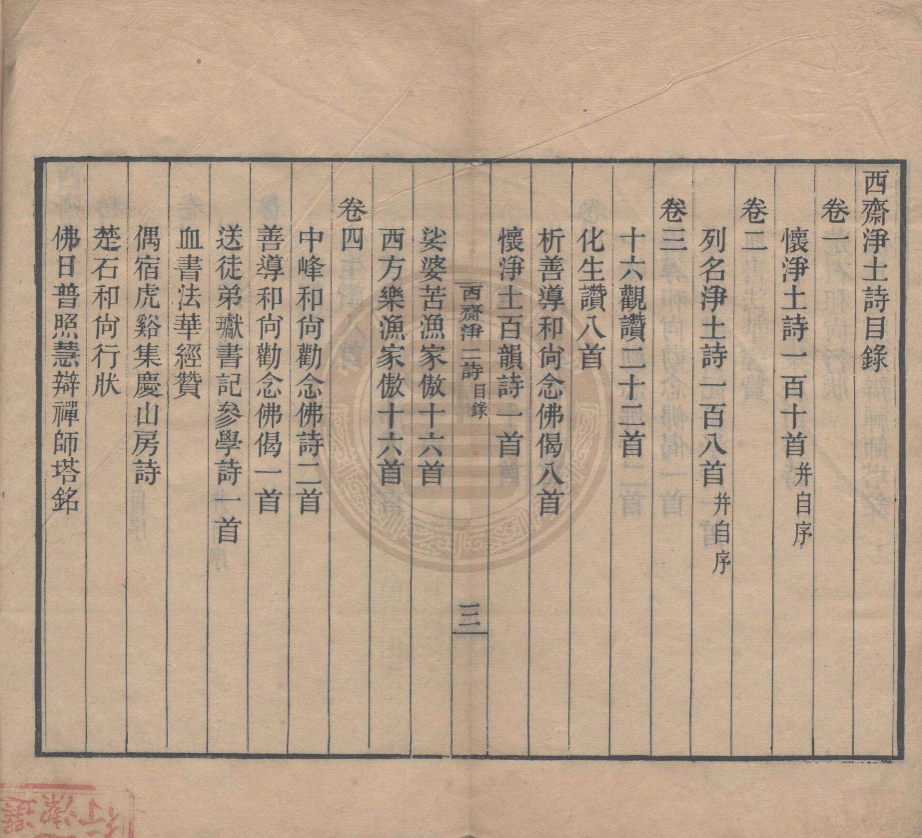 西齋淨土詩目錄
卷一
懷淨土詩一百十首并自序
卷二
列名淨土詩一百八首并自序
卷三
十六觀讚二十二首
化生讚八首
析善導和尙念佛偈八首
懷淨土百韻詩一首
西齋淨土詩目錄
三
娑婆苦漁家傲十六首
西方樂漁家傲十六首
卷四
中峰和尙勸念佛詩二首
善導和尙勸念佛偈一首
送徒弟瓛書記參學詩一首
血書法華經贊
偶宿虎谿集慶山房詩
楚石和尙行狀
佛日普照慧辯禪師塔銘